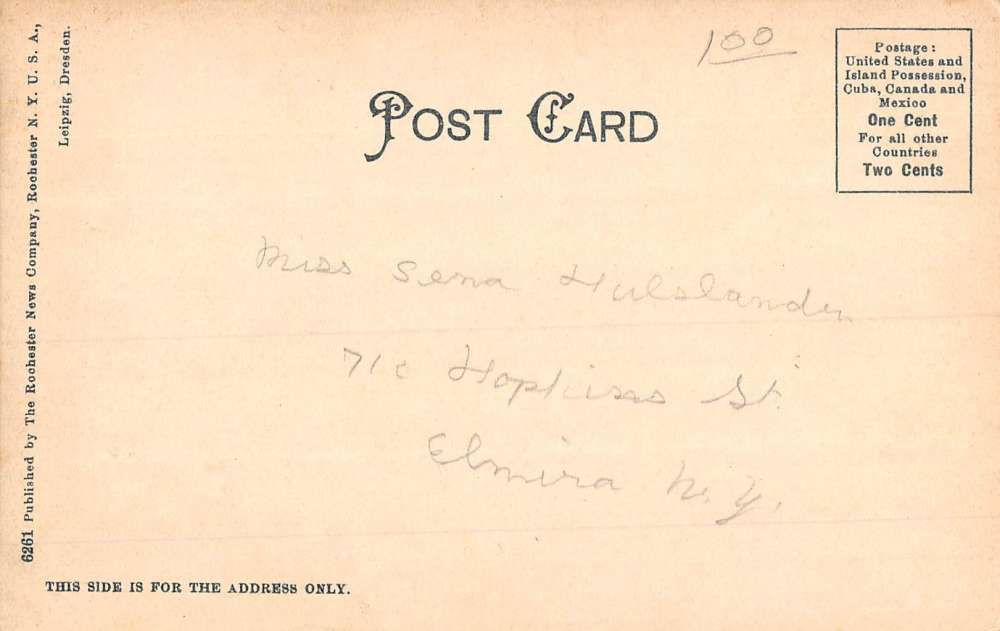 100
POST CARD
Postage:
United States and
Island Possession,
Cuba, Canada and
Mexico
One Cent
For all other
Countries
Two Cents
Miss Sena Hulslander
710 Hopkins St.
Elmira N.Y.
THIS SIDE IS FOR THE ADDRESS ONLY.
6261 Published by The Rochester News Company, Rochester N. Y. U. S. A.,
Leipzig, Dresden.